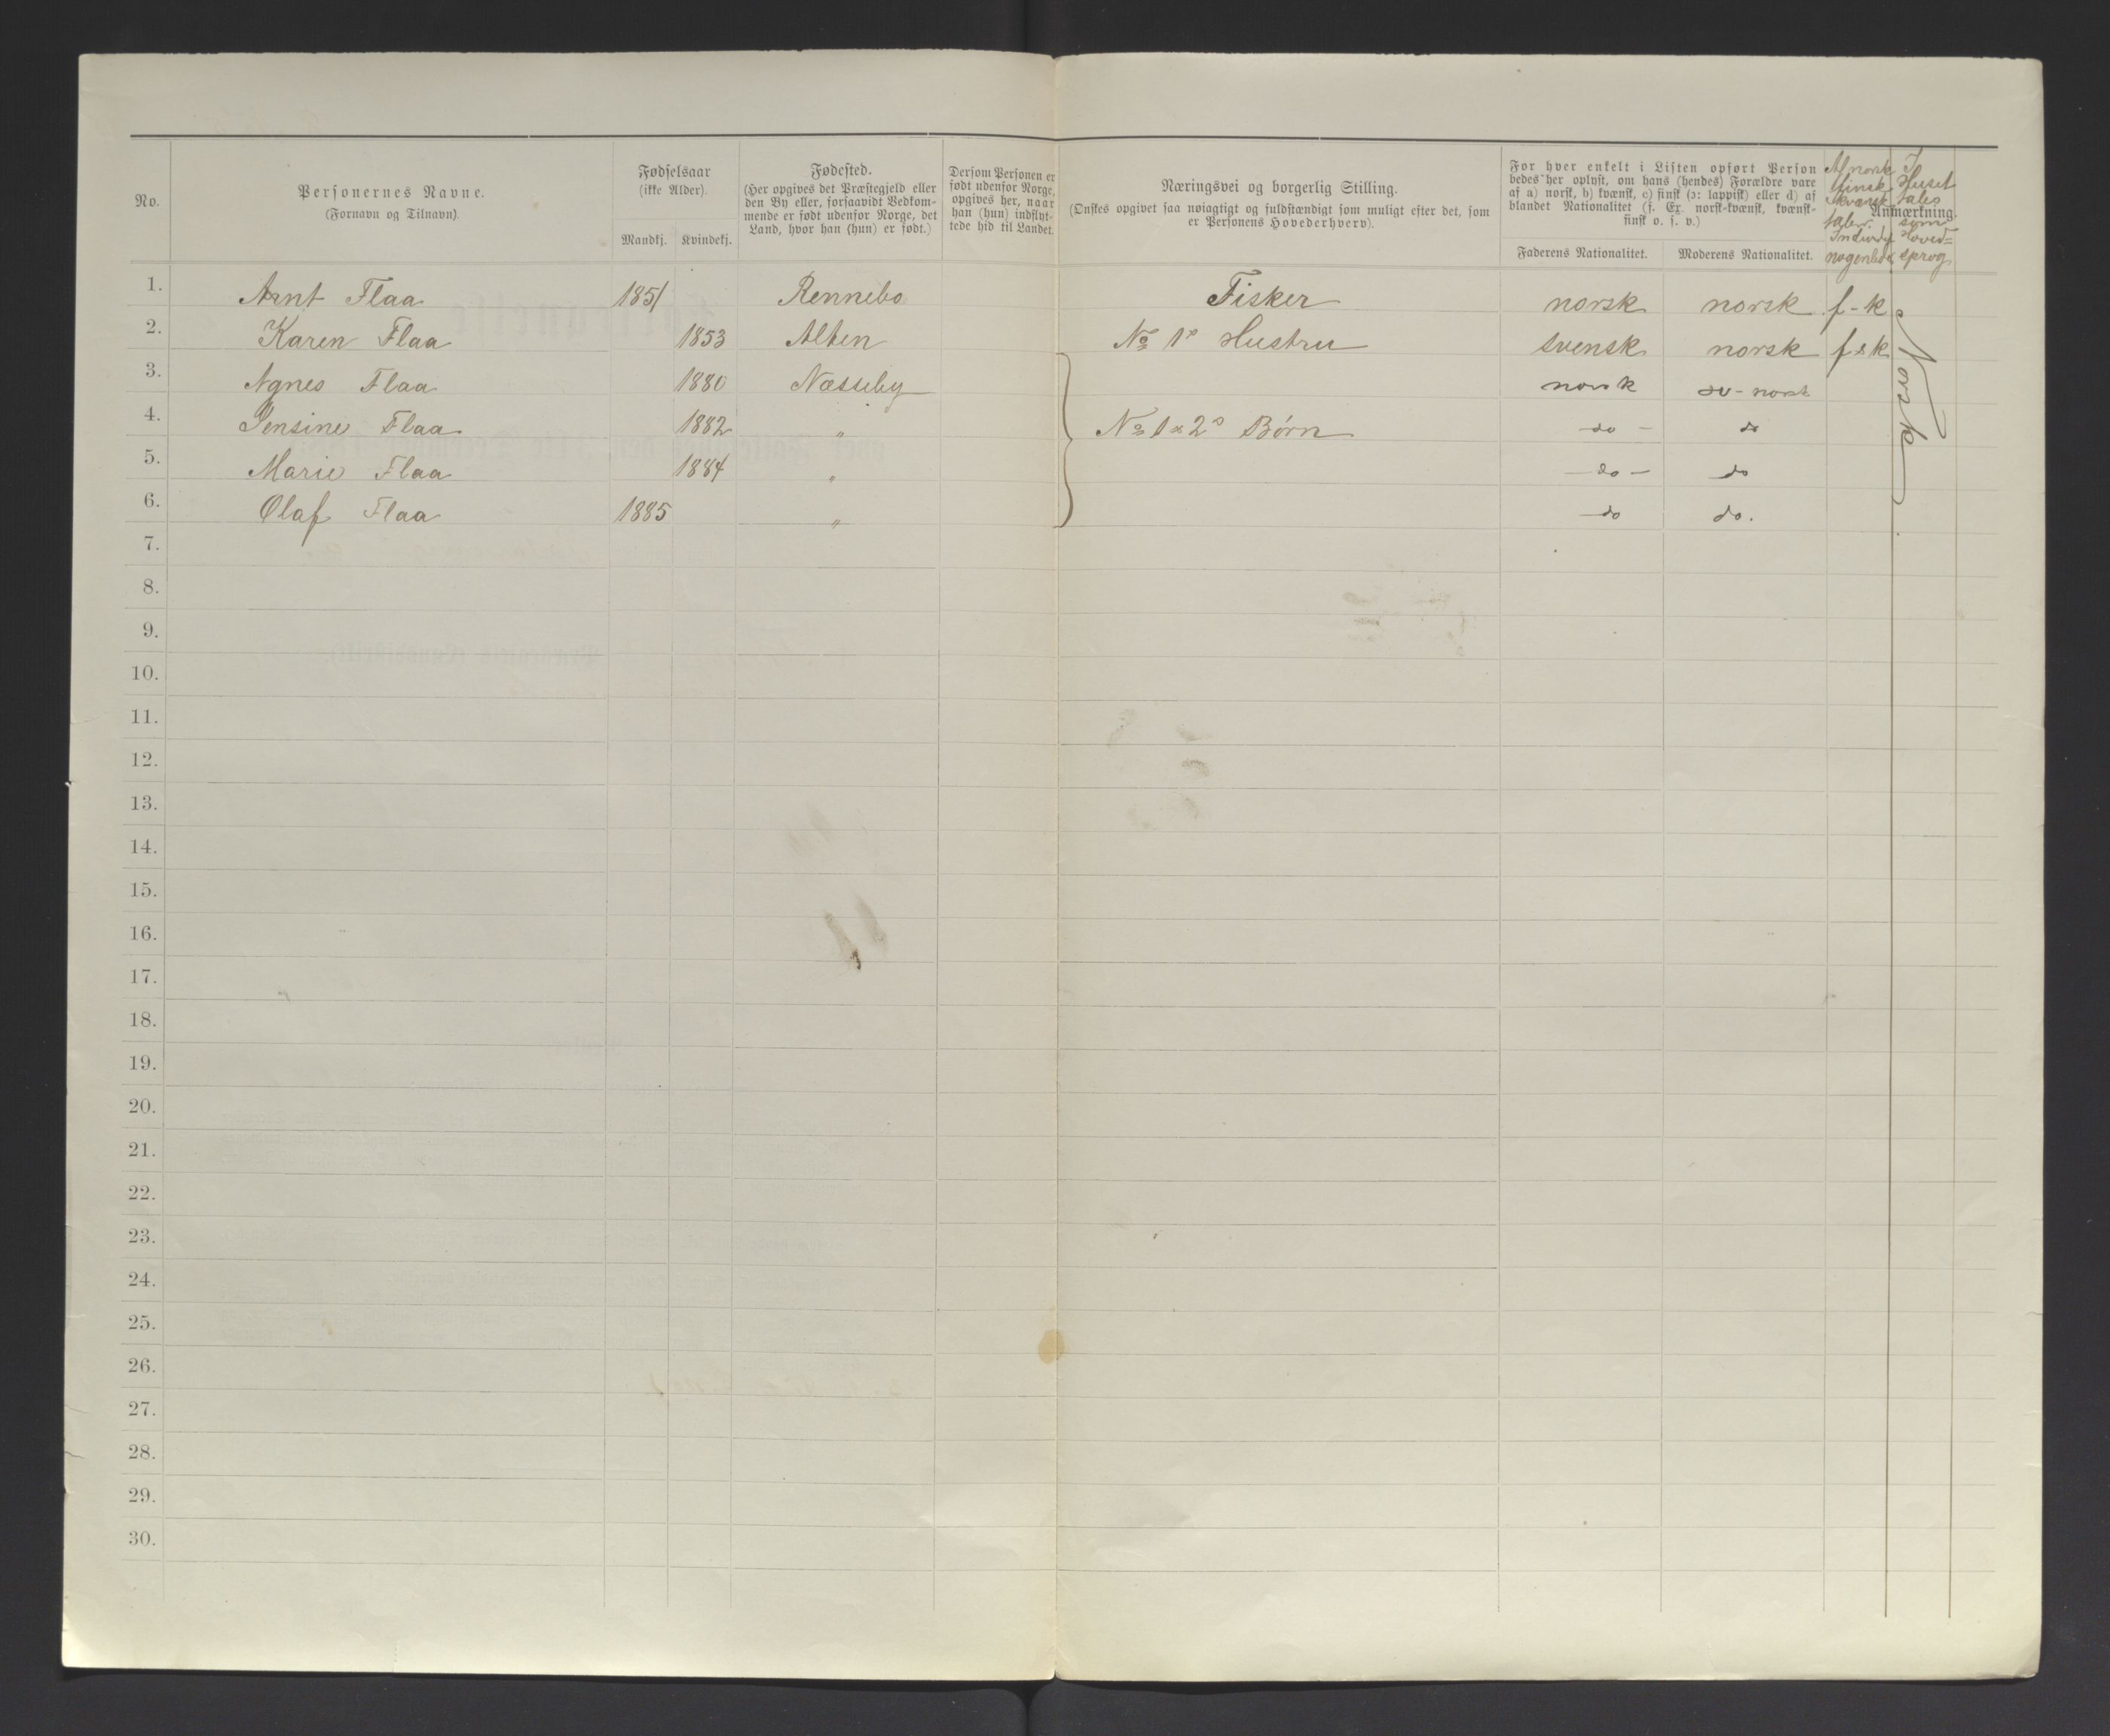 No.
Personernes Navne.
(Fornavn og Tilnavn).
Fødselsaar
(ikke Alder).
Mandkj. Kvindekj.
Fødested.
(Her opgives det Præstegjeld eller
den By eller, forsaavidt Vedkom-
mende er født udenfor Norge, det
Land, hvor han (hun) er født.)
Dersom Personen er
født udenfor Norge,
opgives her, naar
han (hun) indflyt-
tede hid til Landet.
Næringsvei og borgerlig Stilling.
(Ønskes opgivet saa nøiagtigt og fuldstændigt som muligt efter det, som
er Personens Hovederhverv).
For hver enkelt i Listen opført Person
bedes her oplyst, om hans (hendes) Forældre vare
af a) norsk, b) kvænsk, c) finsk (ɔ: lappisk) eller d) af
blandet Nationalitet (f. Ex. norsk-kvænsk, kvænsk-
finsk o. s. v.)
Faderens Nationalitet. Moderens Nationalitet.
Anmærkning.
Af norsk
finsk
kvænsk
taler
I
Huset
tales
som
Hoved-
sprog
1. Arnt Flaa 1851 Rennebo Fisker norsk norsk f-k
2. Karen Flaa 1853 Alten No 1s Hustru svensk norsk f & k
3. Agnes Flaa 1880 Næsseby norsk sv-norsk
4. Jensine Flaa 1882 " No 1 & 2s Børn -do- do
5. Marie Flaa 1884 " -do- do
6. Olaf Flaa 1885 " -do do.
Norsk
7.
8.
9.
10.
11.
12.
13.
14.
15.
16.
17.
18.
19.
20.
21.
22.
23.
24.
25.
26.
27.
28.
29.
30.